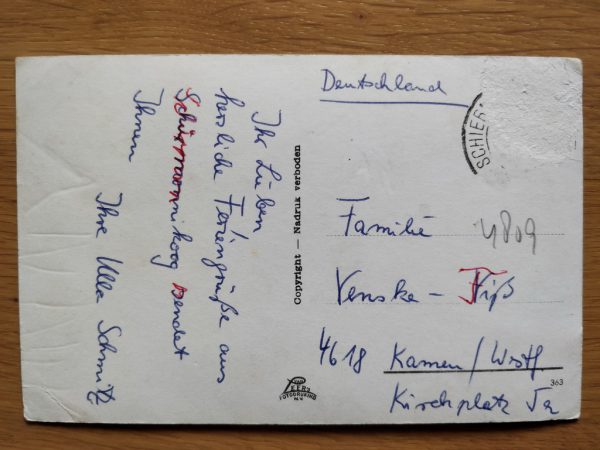 Ihr Lieben
herzliche Feriengrüße aus
Schiermonnikoog sendet
Ihnen
Ihre Ulla Schmitz
Copyright — Nadruk verboden
Deutschland
SCHIER
Familie
4809
Venske - Fiß
4618 Kamen/Westf.
Kirchplatz 5a
363
FOTODRUK
N.V.